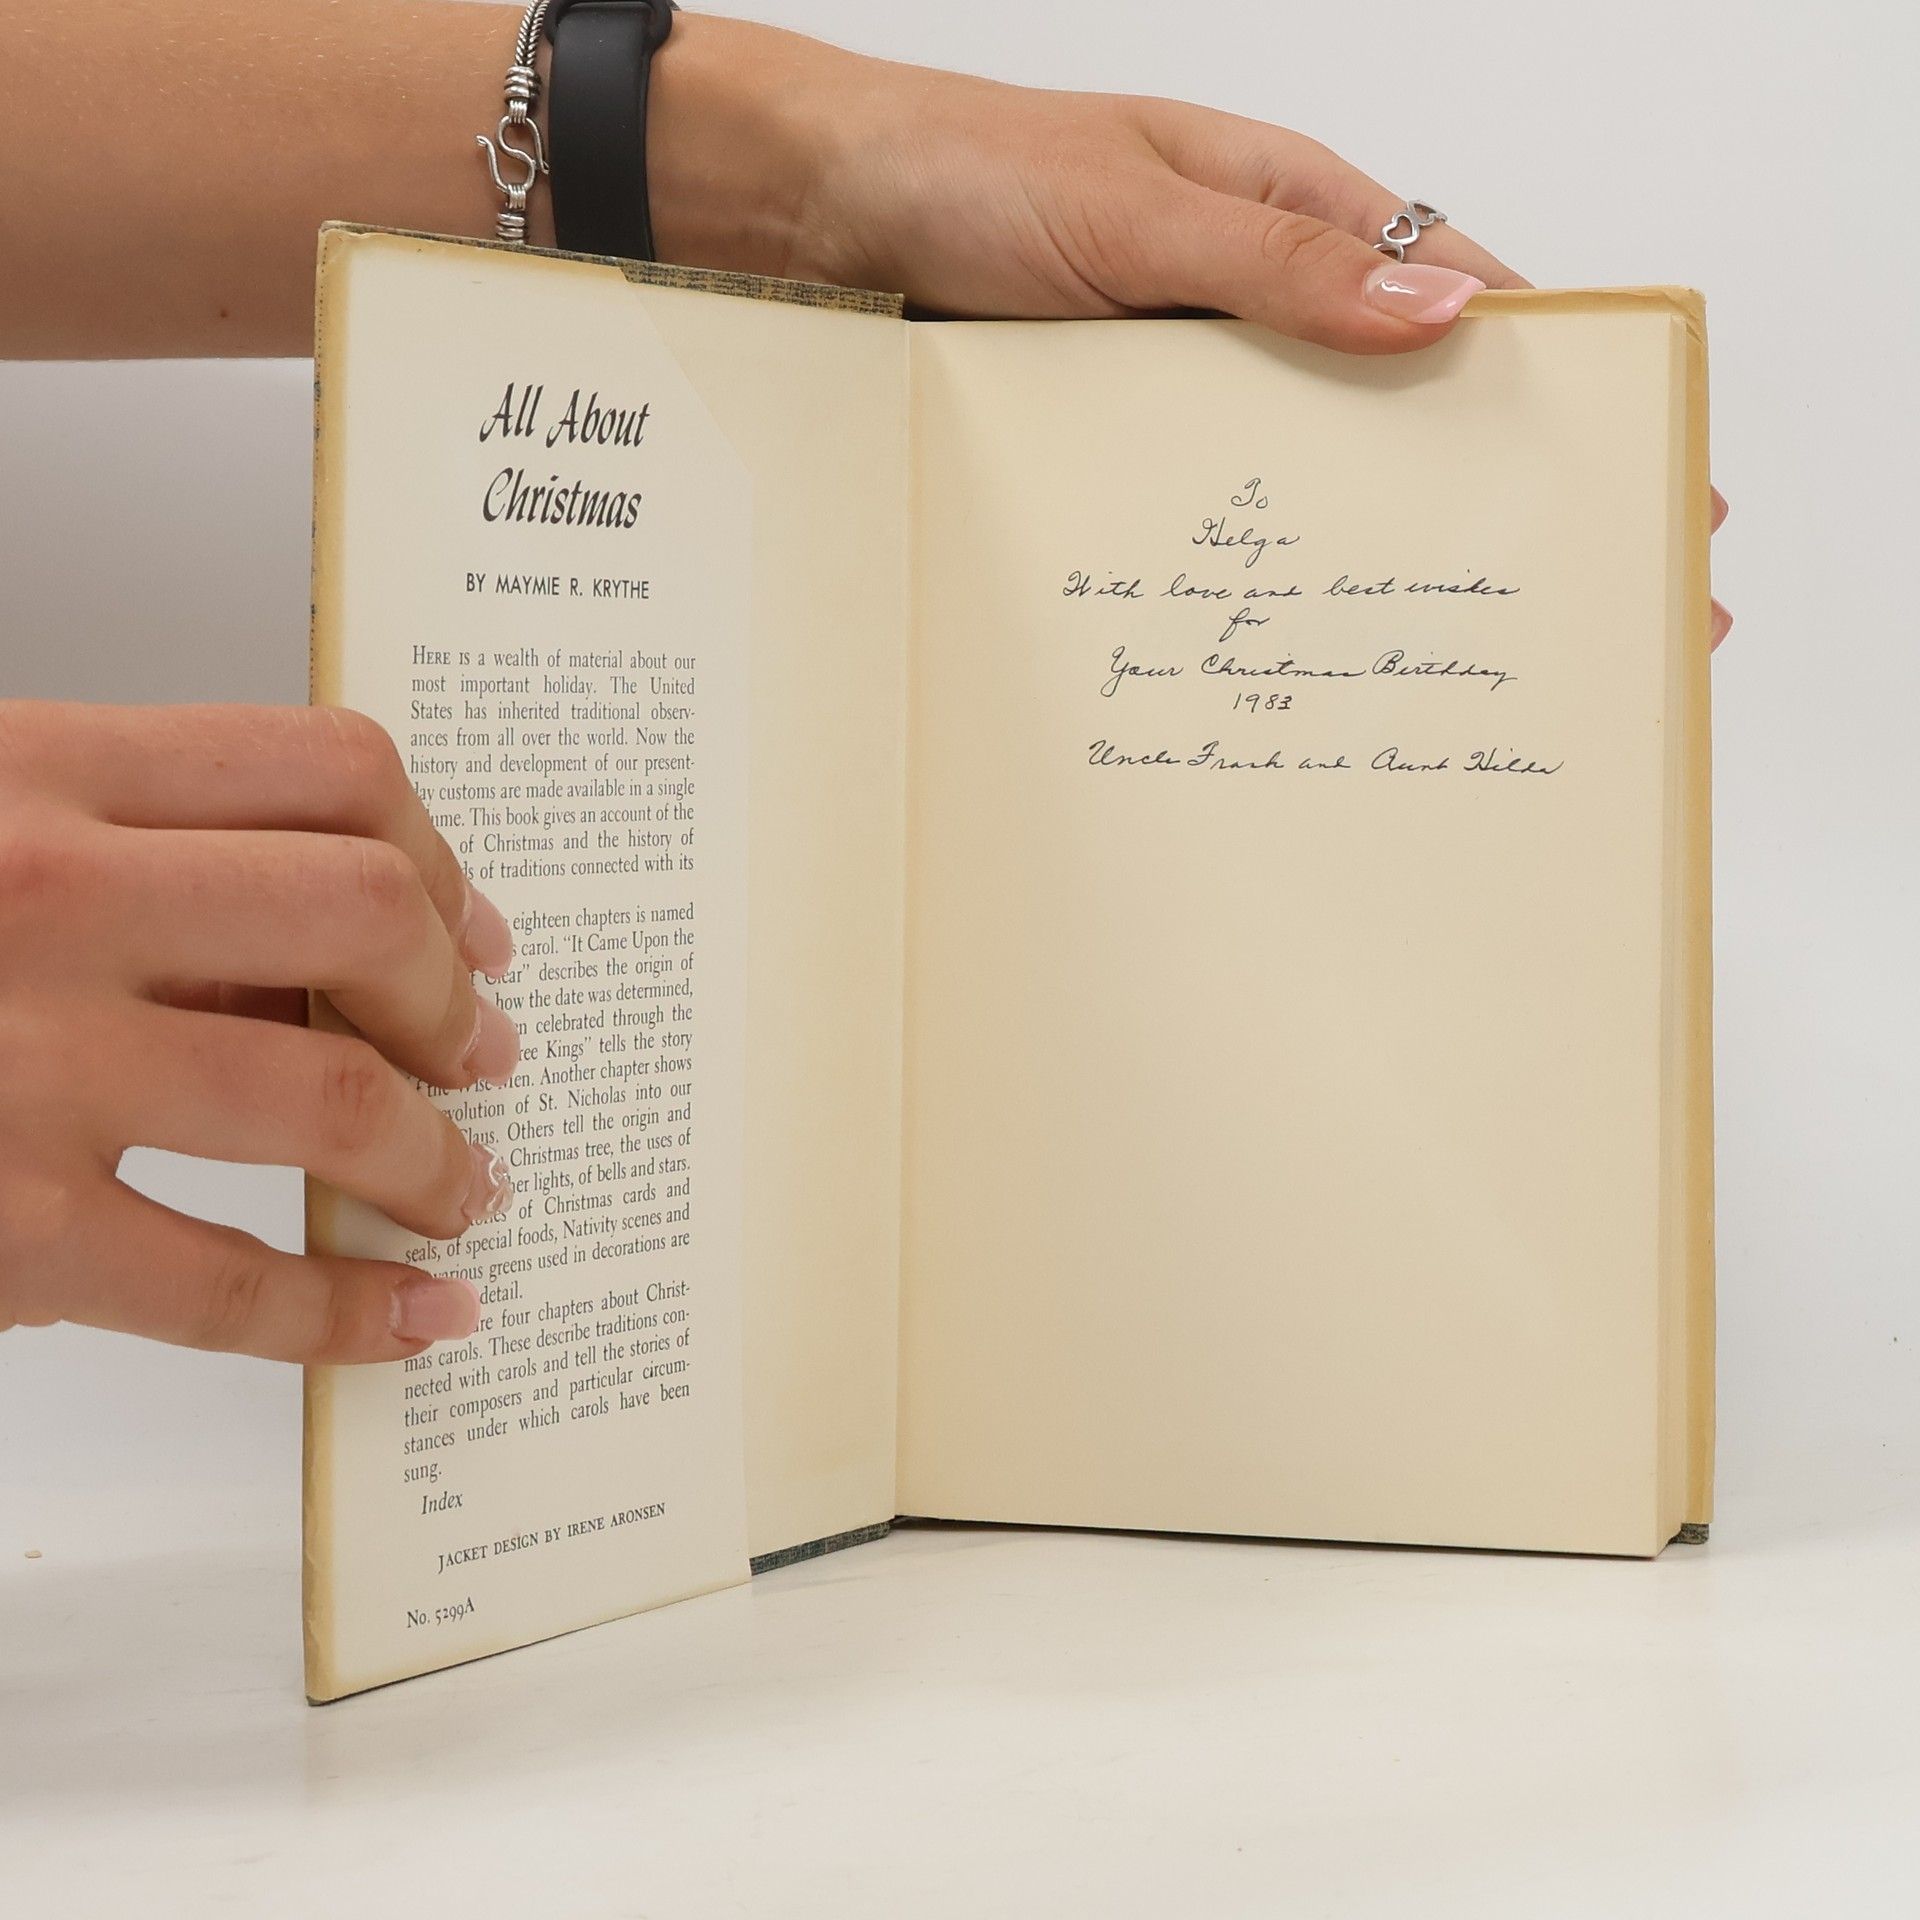 All About
Christmas
BY MAYMIE R. KRYTHE
HERE IS a wealth of material about our
most important holiday. The United
States has inherited traditional observ-
ances from all over the world. Now the
history and development of our present-
day customs are made available in a single
This book gives an account of the
of Christmas and the history of
of traditions connected with its
eighteen chapters is named
carol. “It Came Upon the
Clear” describes the origin of
how the date was determined,
celebrated through the
Kings” tells the story
the Wise Men. Another chapter shows
evolution of St. Nicholas into our
Claus. Others tell the origin and
Christmas tree, the uses of
lights, of bells and stars.
of Christmas cards and
seals, of special foods, Nativity scenes and
various greens used in decorations are
detail.
four chapters about Christ-
mas carols. These describe traditions con-
nected with carols and tell the stories of
their composers and particular circum-
stances under which carols have been
sung.
Index
JACKET DESIGN BY IRENE ARONSEN
No. 5299A
To
Helga
With love and best wishes
for
Your Christmas Birthday
1983
Uncle Frank and Aunt Hilda